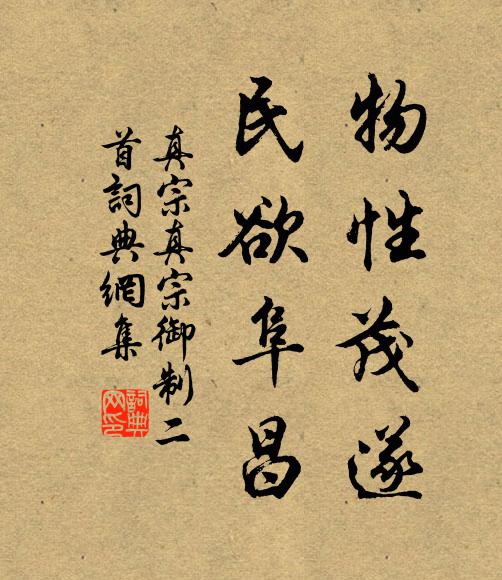 物性茂遂
民欲阜昌
真宗真宗御制二
首詞典網集
詞典
网印